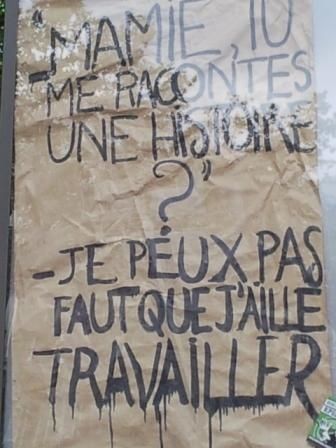 "MAMIE, TU
ME RACONTES
UNE HISTOIRE
?"
-JE PEUX PAS
FAUT QUE J'AILLE
TRAVAILLER